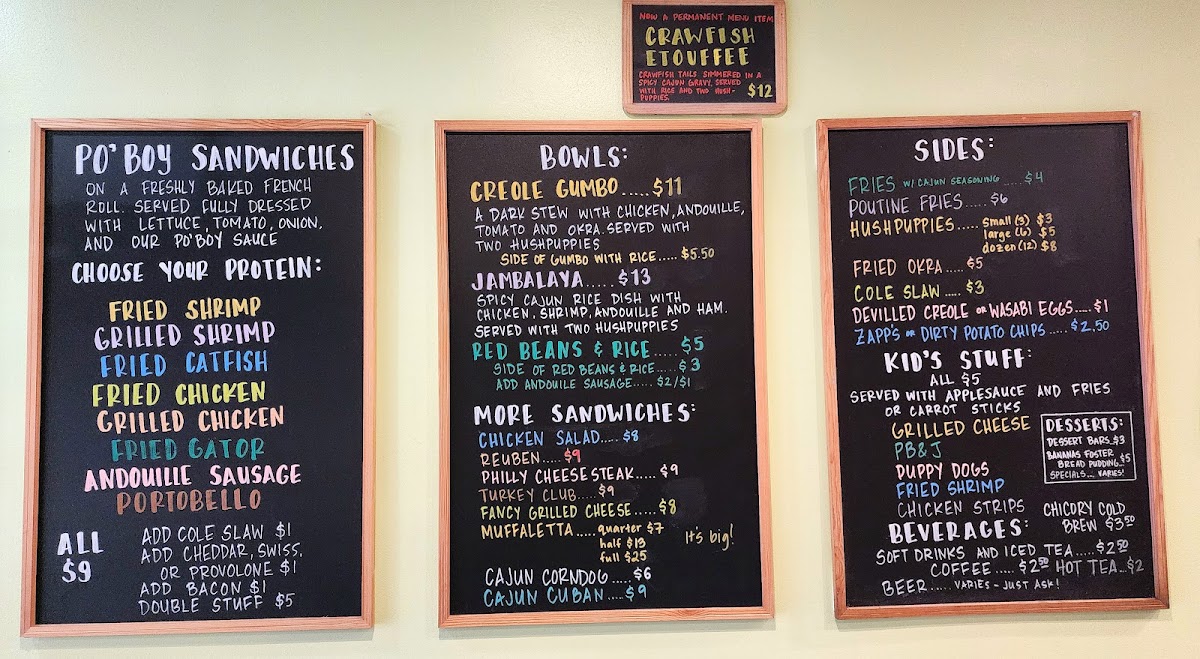 NOW A PERMANENT MENU ITEM
CRAWFISH
ETOUFFEE
CRAWFISH TAILS SIMMERED IN A
SPICY CAJUN GRAVY. SERVED
WITH RICE AND TWO HUSH-
PUPPIES.
$12
PO'BOY SANDWICHES
ON A FRESHLY BAKED FRENCH
ROLL. SERVED FULLY DRESSED
WITH LETTUCE, TOMATO, ONION,
AND OUR PO'BOY SAUCE
CHOOSE YOUR PROTEIN:
FRIED SHRIMP
GRILLED SHRIMP
FRIED CATFISH
FRIED CHICKEN
GRILLED CHICKEN
FRIED GATOR
ANDOUILLE SAUSAGE
PORTOBELLO
ALL
$9
ADD COLE SLAW $1
ADD CHEDDAR, SWISS,
OR PROVOLONE $1
ADD BACON $1
DOUBLE STUFF $5
BOWLS:
CREOLE GUMBO.....$11
A DARK STEW WITH CHICKEN, ANDOUILLE,
TOMATO AND OKRA. SERVED WITH
TWO HUSHPUPPIES
SIDE OF GUMBO WITH RICE.....$5.50
JAMBALAYA.....$13
SPICY CAJUN RICE DISH WITH
CHICKEN, SHRIMP, ANDOUILLE AND HAM.
SERVED WITH TWO HUSHPUPPIES
RED BEANS & RICE.....$5
SIDE OF RED BEANS & RICE....$3
ADD ANDOUILLE SAUSAGE.....$2/$1
MORE SANDWICHES:
CHICKEN SALAD.....$8
REUBEN.....$9
PHILLY CHEESESTEAK.....$9
TURKEY CLUB.....$9
FANCY GRILLED CHEESE.....$8
MUFFALETTA.....quarter $7
half $13
full $25
It's big!
CAJUN CORNDOG.....$6
CAJUN CUBAN....$9
SIDES:
FRIES W/ CAJUN SEASONING.....$4
POUTINE FRIES.....$6
HUSHPUPPIES.....small (3) $3
large (6) $5
dozen (12) $8
FRIED OKRA....$5
COLE SLAW.....$3
DEVILLED CREOLE OR WASABI EGGS....$1
ZAPP'S OR DIRTY POTATO CHIPS.....$2.50
KID'S STUFF:
ALL $5
SERVED WITH APPLESAUCE AND FRIES
OR CARROT STICKS
GRILLED CHEESE
PB&J
PUPPY DOGS
FRIED SHRIMP
CHICKEN STRIPS
DESSERTS:
DESSERT BARS..$3
BANANAS FOSTER
BREAD PUDDING...$5
SPECIALS... VARIES!
BEVERAGES:
CHICORY COLD
BREW $3.50
SOFT DRINKS AND ICED TEA.....$2.50
COFFEE.....$2.50 HOT TEA...$2
BEER.....VARIES - JUST ASK!